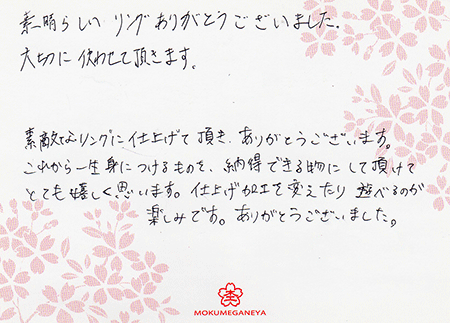 素晴らしい リング ありがとうございました.
大切に使わせて頂きます。
素敵なリングに仕上げて頂き、ありがとうございます。
これから一生身につけるものを、納得できる物にして頂けて
とても嬉しく思います。仕上げ加工を変えたり 遊べるのが
楽しみです。ありがとうございました。
MOKUMEGANEYA